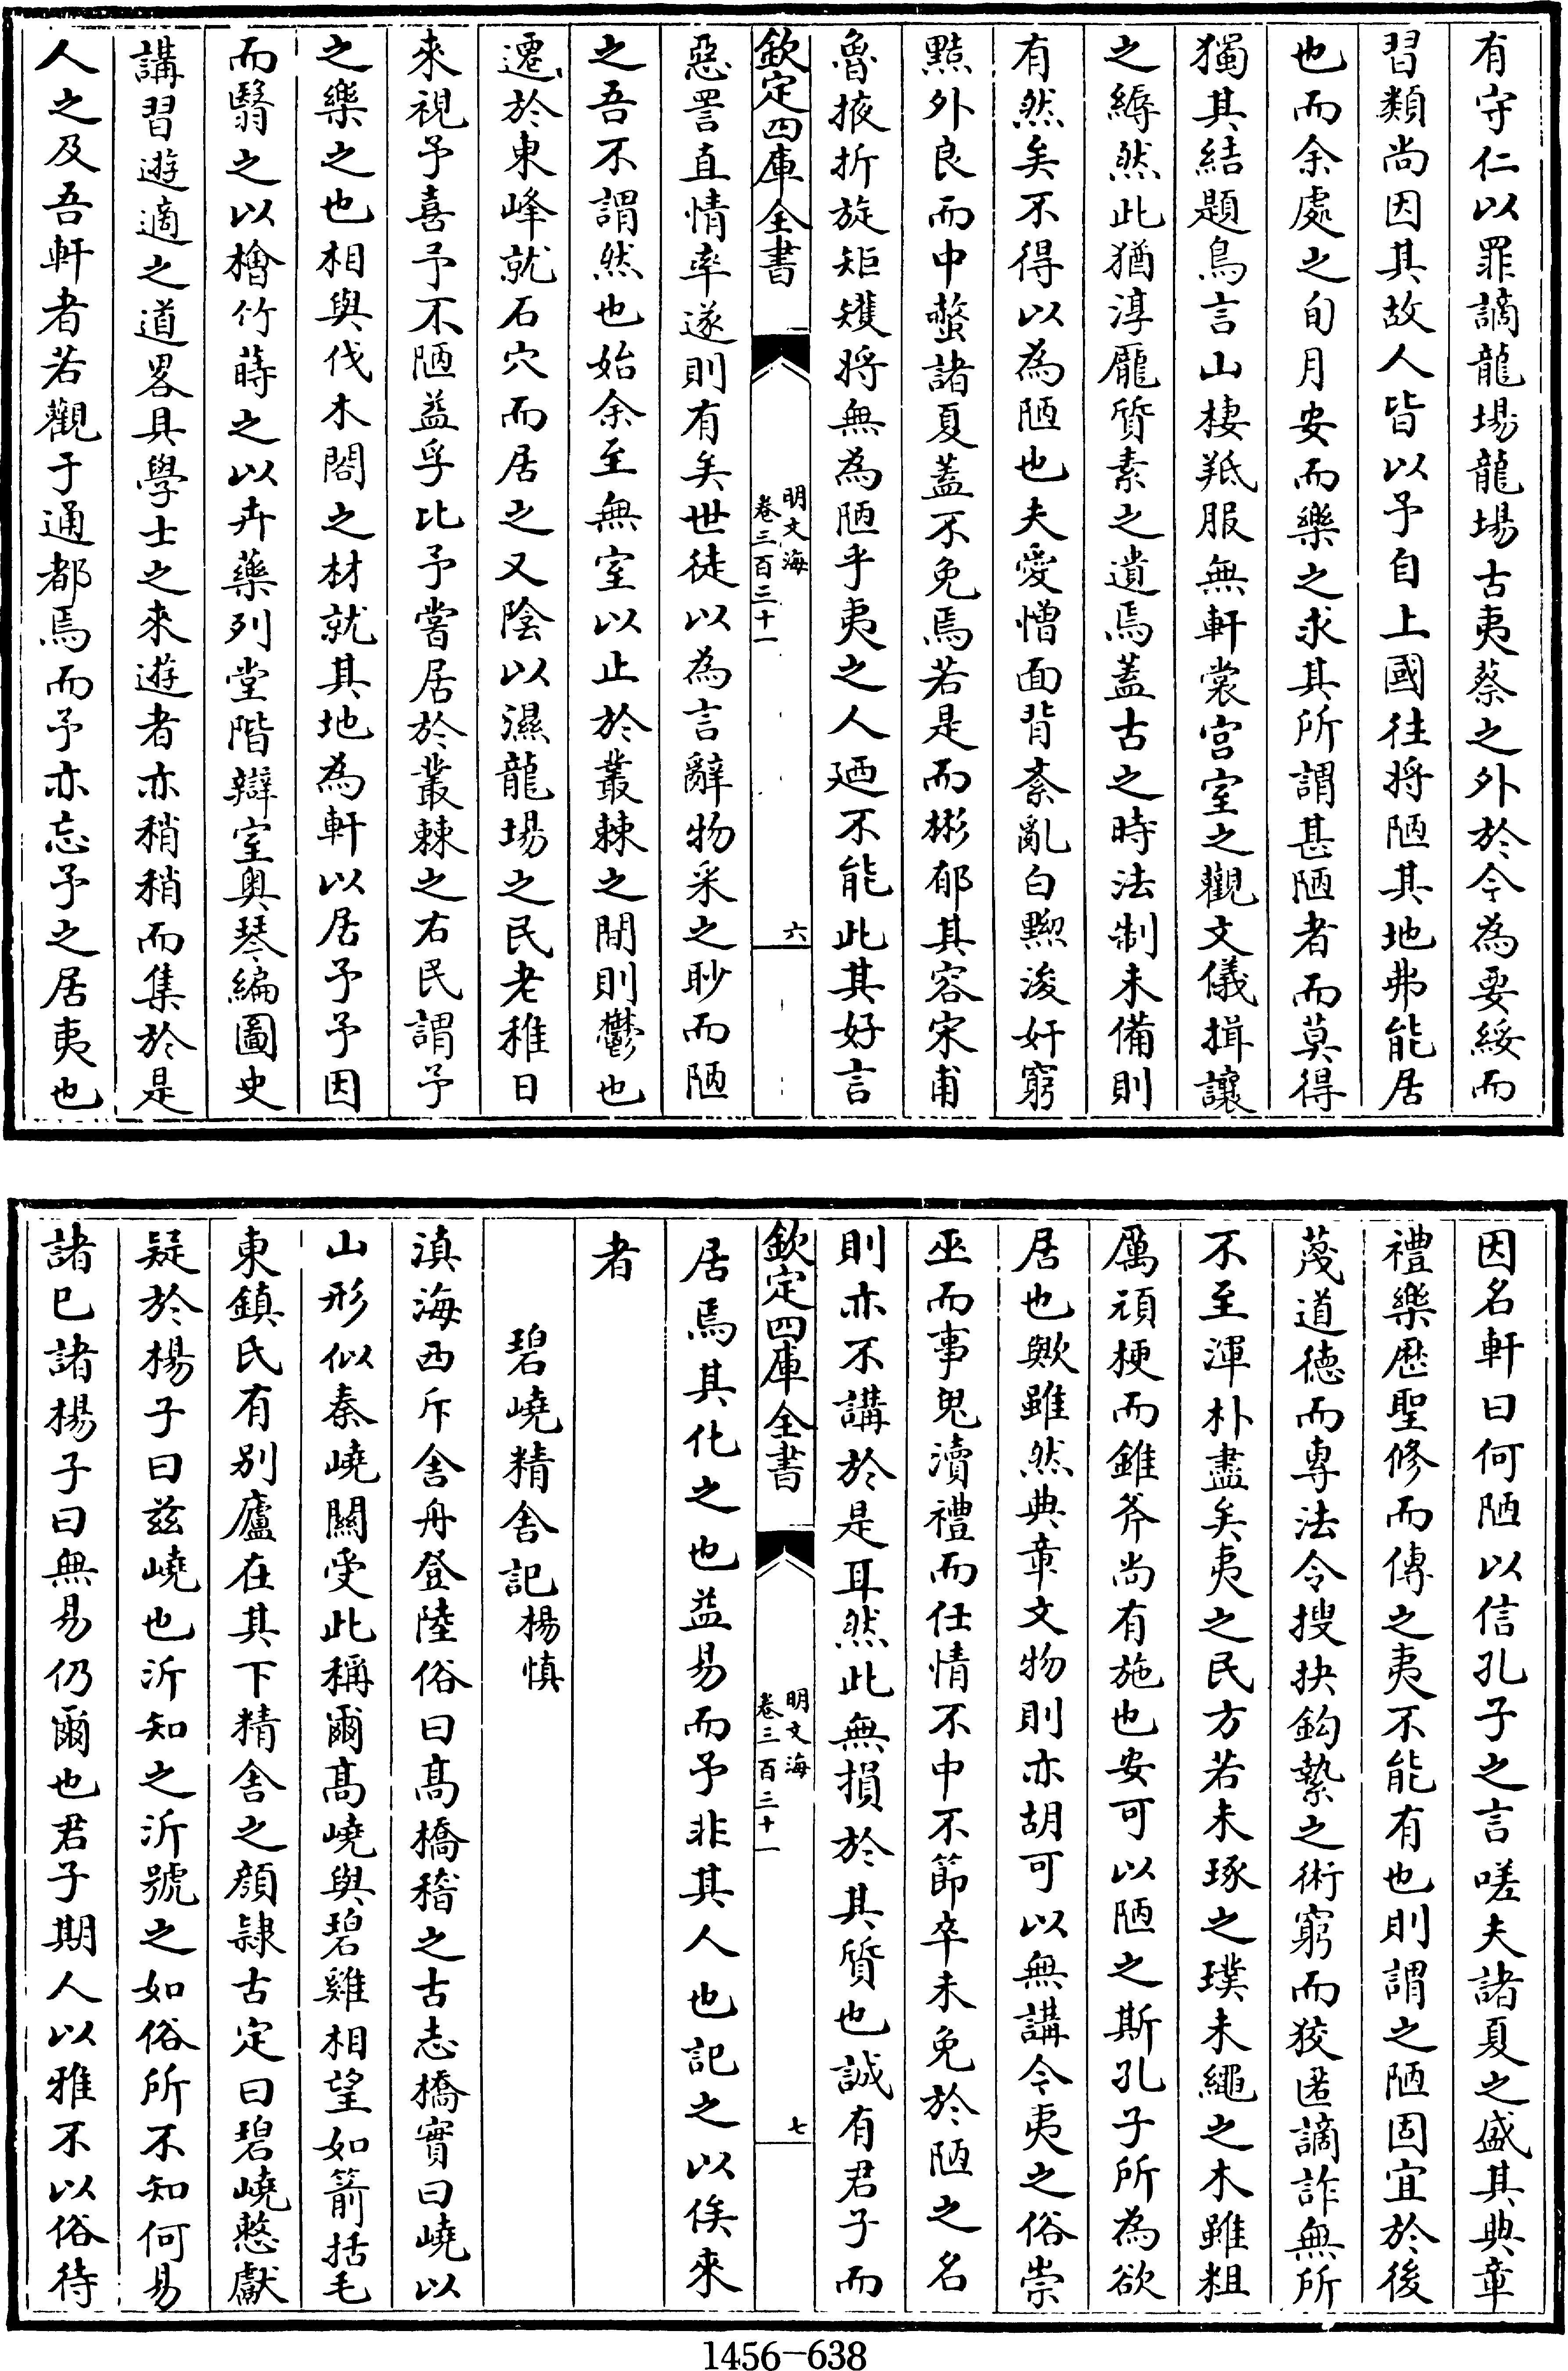 有守仁以罪謫龍場龍場古夷蔡之外於今為要綏而
習類尚因其故人皆以予自上國往將陋其地弗能居
也而余處之旬月安而樂之求其所謂甚陋者而莫得
獨其結題鳥言山棲羝服無軒裳宫室之觀文儀揖讓
之縟然此猶淳龎質素之遺焉蓋古之時法制未備則
有然矣不得以為陋也夫愛憎面背紊亂白黝浚奸窮
黠外良而中螫諸夏蓋不免焉若是而彬郁其容宋甫
魯掖折旋矩矱將無為陋乎夷之人廼不能此其好言
欽定四庫全書
明文海
卷三百三十一
六
惡詈直情率遂則有矣世徒以為言辭物采之眇而陋
之吾不謂然也始余至無室以止於叢棘之間則鬱也
遷於東峰就石穴而居之又陰以濕龍場之民老稚日
來視予喜予不陋益孚比予嘗居於叢棘之右民謂予
之樂之也相與伐木閣之材就其地為軒以居予予因
而翳之以檜竹蒔之以卉藥列堂階辯室奥琴編圖史
講習遊適之道畧具學士之來遊者亦稍稍而集於是
人之及吾軒者若觀于通都焉而予亦忘予之居夷也
因名軒曰何陋以信孔子之言嗟夫諸夏之盛其典章
禮樂歴聖修而傳之夷不能有也則謂之陋固宜於後
蔑道徳而專法令搜抉鈎縶之術窮而狡匿譎詐無所
不至渾朴盡矣夷之民方若未琢之璞未繩之木雖粗
厲頑梗而錐斧尚有施也安可以陋之斯孔子所為欲
居也歟雖然典章文物則亦胡可以無講今夷之俗崇
巫而事鬼瀆禮而任情不中不節卒未免於陋之名
則亦不講於是耳然此無損於其質也誠有君子而
欽定四庫全書
明文海
卷三百三十一
七
居焉其化之也益易而予非其人也記之以俟來
者
碧嶢精舍記楊慎
滇海西斥舍舟登陸俗曰髙橋稽之古志橋實曰嶢以
山形似秦嶢關受此稱爾髙嶢與碧雞相望如箭括毛
東鎮氏有别廬在其下精舍之顔隷古定曰碧嶢憗獻
疑於楊子曰兹嶢也沂知之沂號之如俗所不知何易
諸巳諸楊子曰無易仍爾也君子期人以雅不以俗待
1456-638